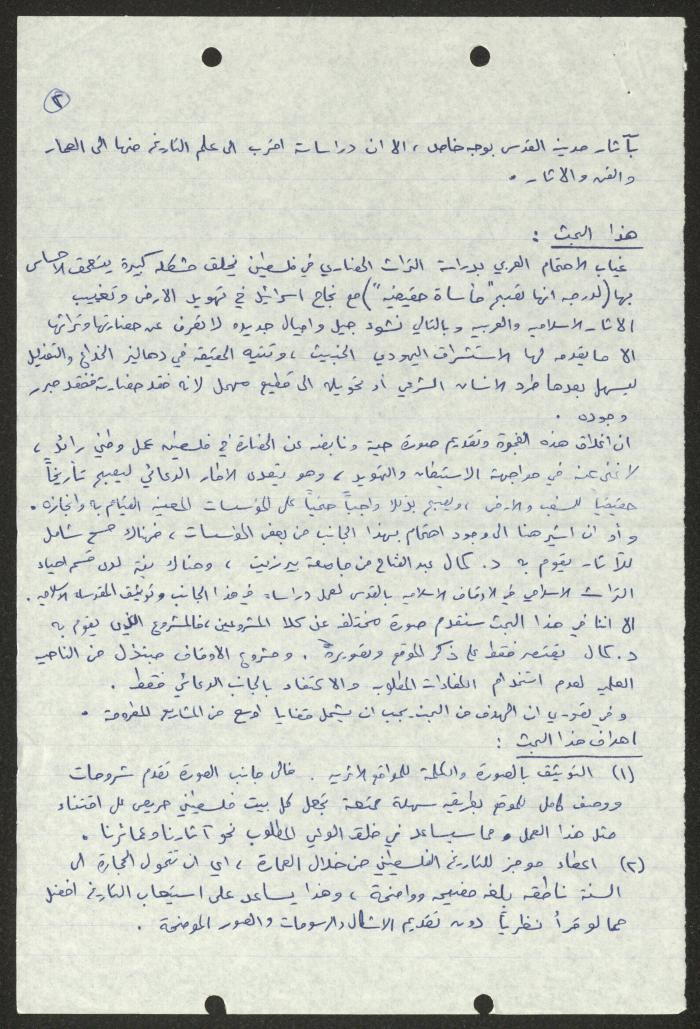 ٢
بآثار مدينة القدس بوجه خاص ، الا ان دراساته اقرب الى علم التاريخ منها الى العمار
والفن والاثار .
هذا البحث :
غياب الاهتمام العربي بدراسة التراث الحضاري في فلسطين يخلق مشكلة كبيرة يتعمق الاحساس
بها (لدرجة انها تصبح "مأساة حقيقية") مع نجاح اسرائيل في تهويد الارض وتغييب
الاثار الاسلامية والعربية وبالتالي نشوء جيل واجيال جديدة لا تعرف عن حضارتها وتراثها
الا ما يقدمه لها الاستشراق اليهودي الخبيث ، وتتيه الحقيقة في دهاليز الخداع والتضليل
ليسهل بعدها طرد الانسان الشرقي أو تحويله الى قطيع مهمل لانه فقد حضارته ففقد مبرر
وجوده .
ان اغلاق هذه الفجوة وتقديم صورة حية ونابضة عن الحضارة في فلسطين عمل وطني رائد ،
لا غنى عنه في مواجهة الاستيطان والتهويد ، وهو يتعدى الاطار الدعائي ليصبح تأريخاً
حقيقياً للشعب والارض ، ويصبح بذلك واجباً حتمياً على المؤسسات المعنية القيام به وانجازه .
و أود ان اشير هنا الى وجود اهتمام بهذا الجانب من بعض المؤسسات ، فهناك مسح شامل
للآثار يقوم به د. كمال عبد الفتاح من جامعة بيرزيت ، وهناك نية لدى قسم احياء
التراث الاسلامي في الاوقاف الاسلامية بالقدس لعمل دراسة في هذا الجانب وتوثيق المقدسات الاسلامية .
الا اننا في هذا البحث سنقدم صورة مختلفة عن كلا المشروعين ، فالمشروع الذي يقوم به
د. كمال يقتصر فقط على ذكر الموقع وتصويره . ومشروع الاوقاف مبتذل من الناحية
العلمية لعدم استخدام الكفاءات المطلوبة والاكتفاء بالجانب الدعائي فقط .
وفي تصوري ان الهدف من البحث يجب ان يشمل قضايا اوسع من المشاريع المطروحة .
اهداف هذا البحث :
(١) التوثيق بالصورة والكلمة للمواقع الاثرية . فالى جانب الصورة تقدم شروحات
ووصف كامل للموقع بطريقة سهلة ممتعة تجعل كل بيت فلسطيني حريص على اقتناء
مثل هذا العمل ، مما سيساعد في خلق الوعي المطلوب نحو آثارنا وعمائرنا .
(٢) اعطاء موجز للتاريخ الفلسطيني من خلال العمارة ، اي ان تتحول الحجارة الى
السنة ناطقة بلغة فصيحة وواضحة ، وهذا يساعد على استيعاب التاريخ افضل
مما لو قرأ نظرياً دون تقديم الاشكال والرسومات والصور الموضحة .